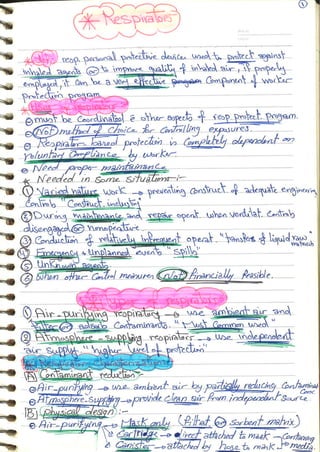 ①
* Respirators
resp. personal protective devices used to protect against
inhaled agents or to improve quality of inhaled air, if properly
employed, it can be a very effective component of worker
protection program
must be Coordinated c other aspects of resp protect program
Not method of choice for controlling exposures.
Respirators based protection is completely dependent on
voluntary compliance by worker.
Need proper maintainance
* Needed in Some Situation :-
① Varied nature work → preventing construct of adequate engineering
controls Construct. industry
② During maintenance and repair operat when ventilat. Controls
disengaged or nonoperative
③ Conduction of relatively infrequent operat. "transfers of liquid raw materials
④ Emergency & Unplanned events "Spills"
⑤ Unknown agents
⑥ when other Control measures Not financially feasible.
types respirators
① Air-purifying respirators → use ambient air and
filter or adsorb Contaminants. "Most Common used"
② Atmosphere-supplying respirators → use independent
air supply "higher level of protection"
A Contaminant reduction:-
Air-purifying → use ambient air by partially reducing Contaminant Conc
Atmosphere-supplying → provide clean air from independent source
B physical design :-
Air-purifying → Mask only (Filter or sorbent matrix)
Cartridge → direct attached to mask → Containing
Canister → attached by hose to mask → media.